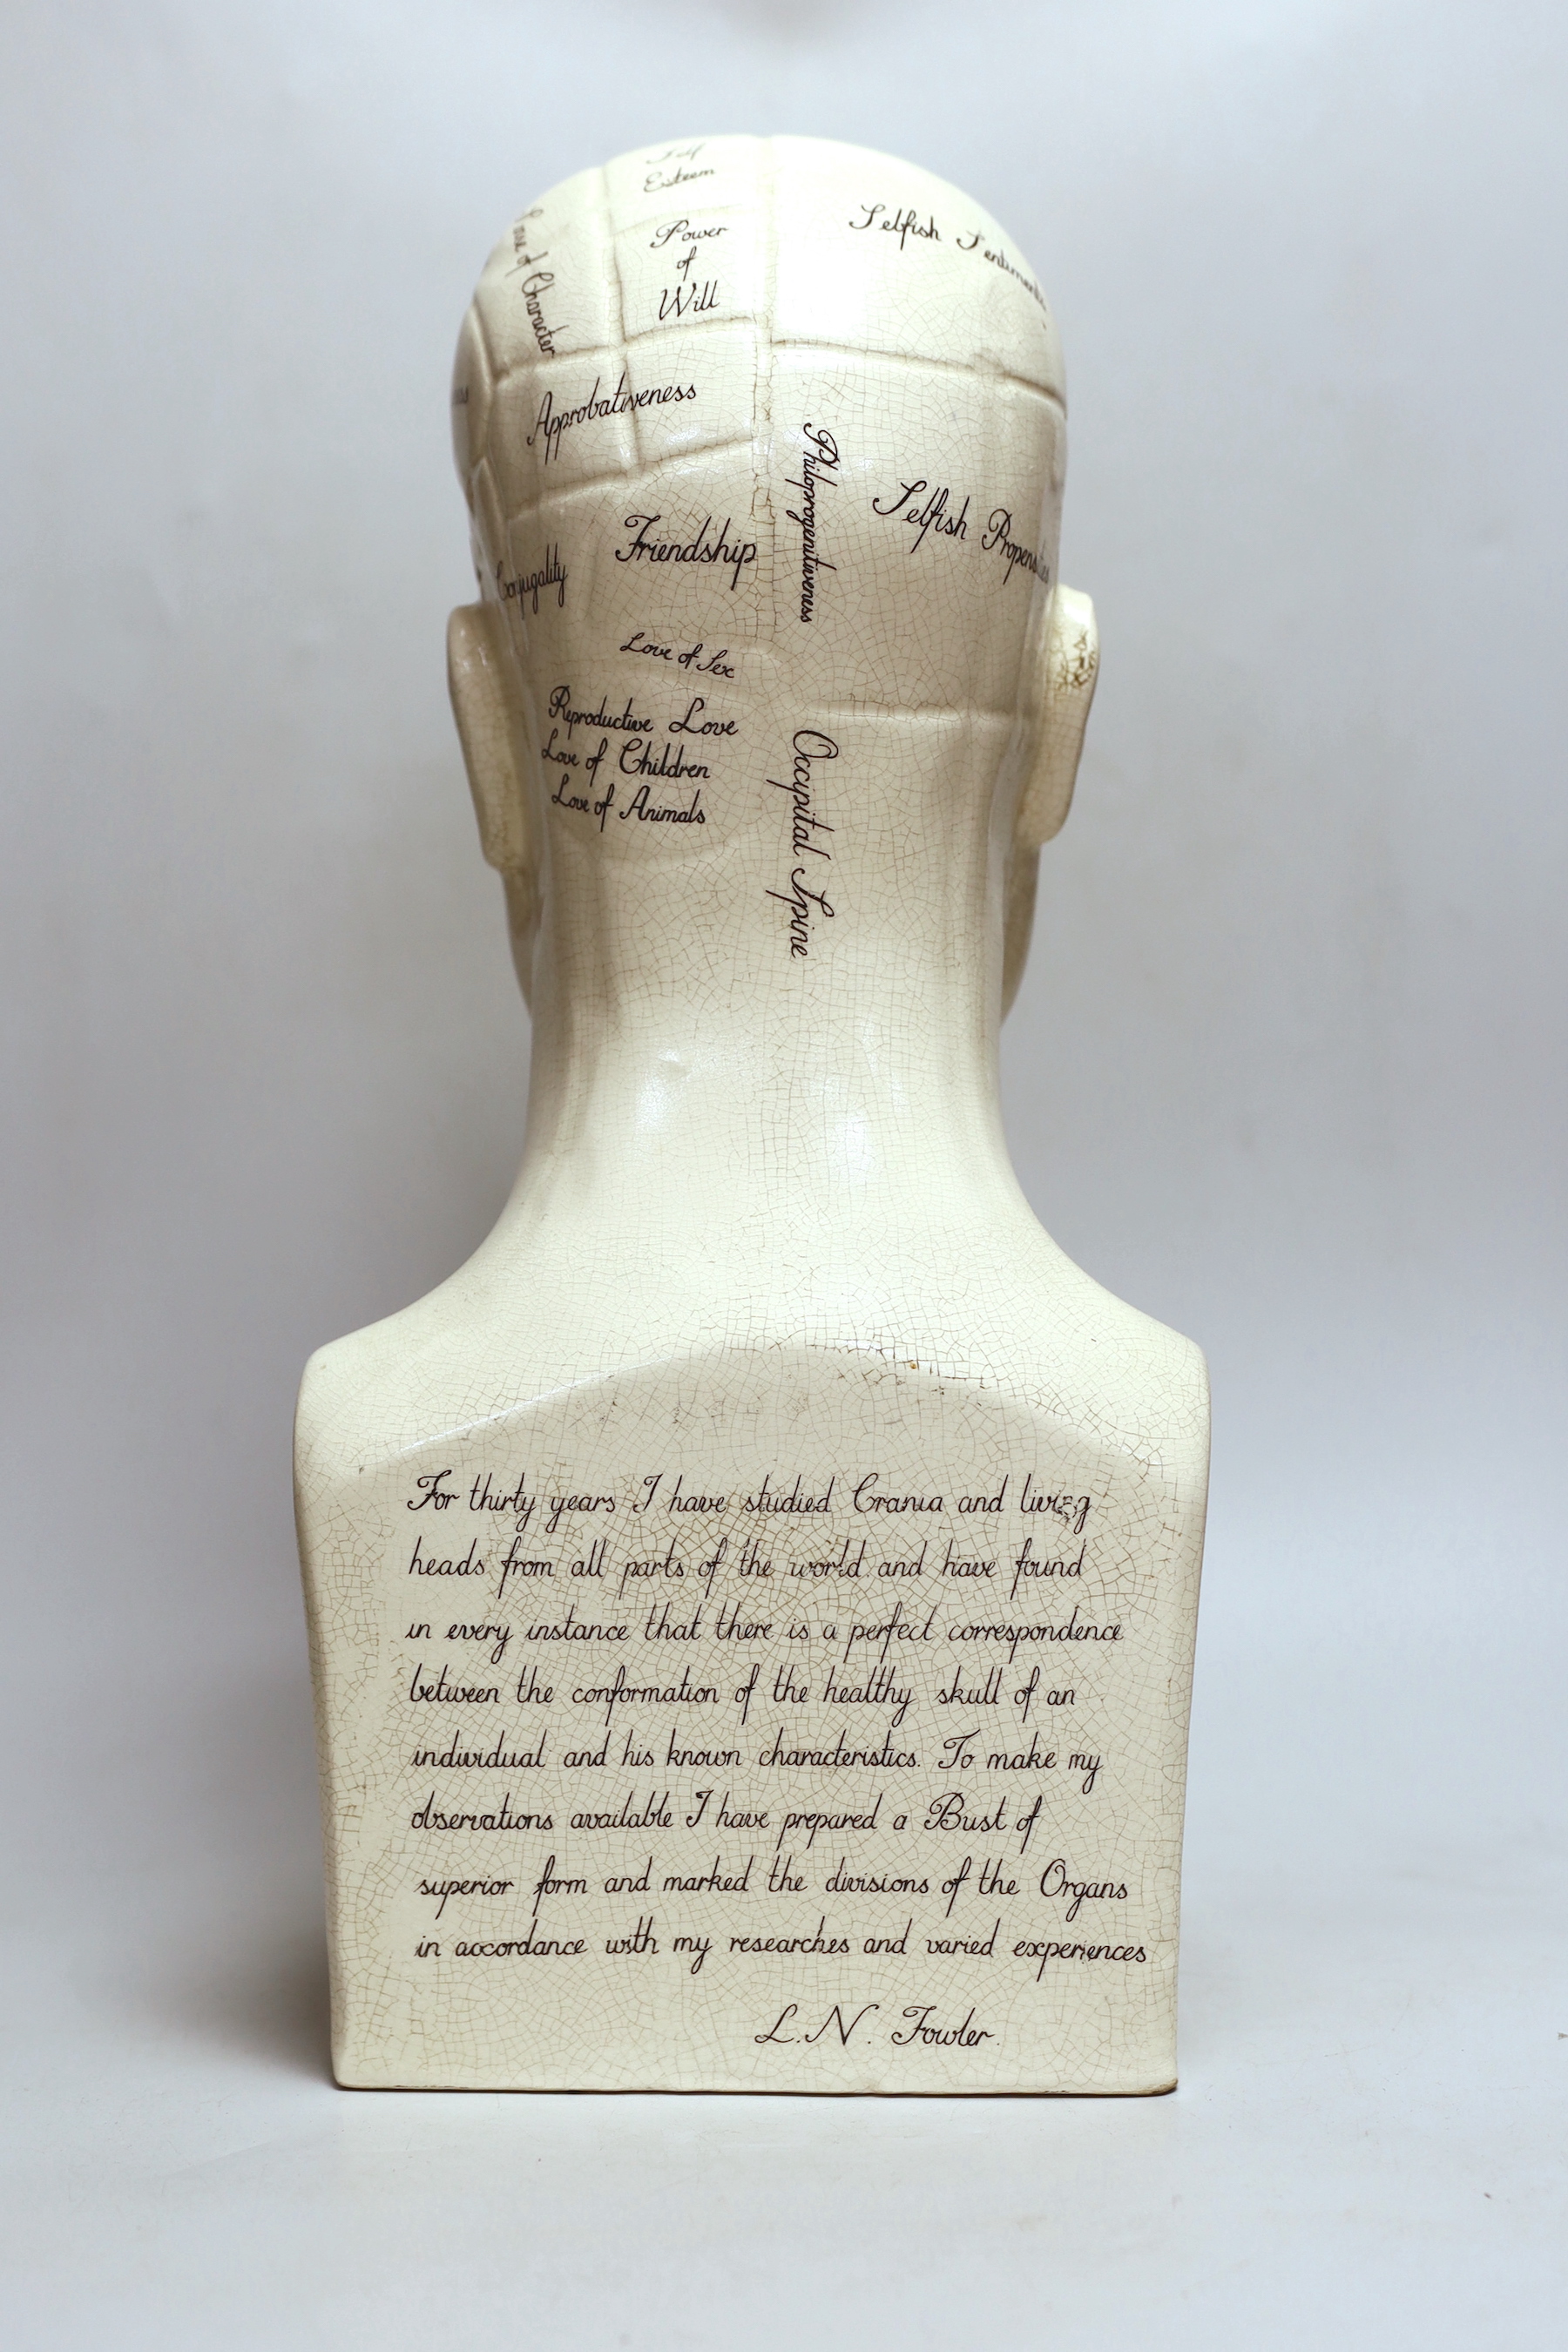 Self
Esteem
Power
of
Will
Love of Character
Selfish Sentiments
Approbativeness
Philoprogenitiveness
Selfish Propensities
Friendship
Conjugality
Love of Sex
Reproductive Love
Love of Children
Love of Animals
Occipital Spine
For thirty years I have studied Crania and living
heads from all parts of the world and have found
in every instance that there is a perfect correspondence
between the conformation of the healthy skull of an
individual and his known characteristics. To make my
observations available I have prepared a Bust of
superior form and marked the divisions of the Organs
in accordance with my researches and varied experiences
L.N. Fowler.